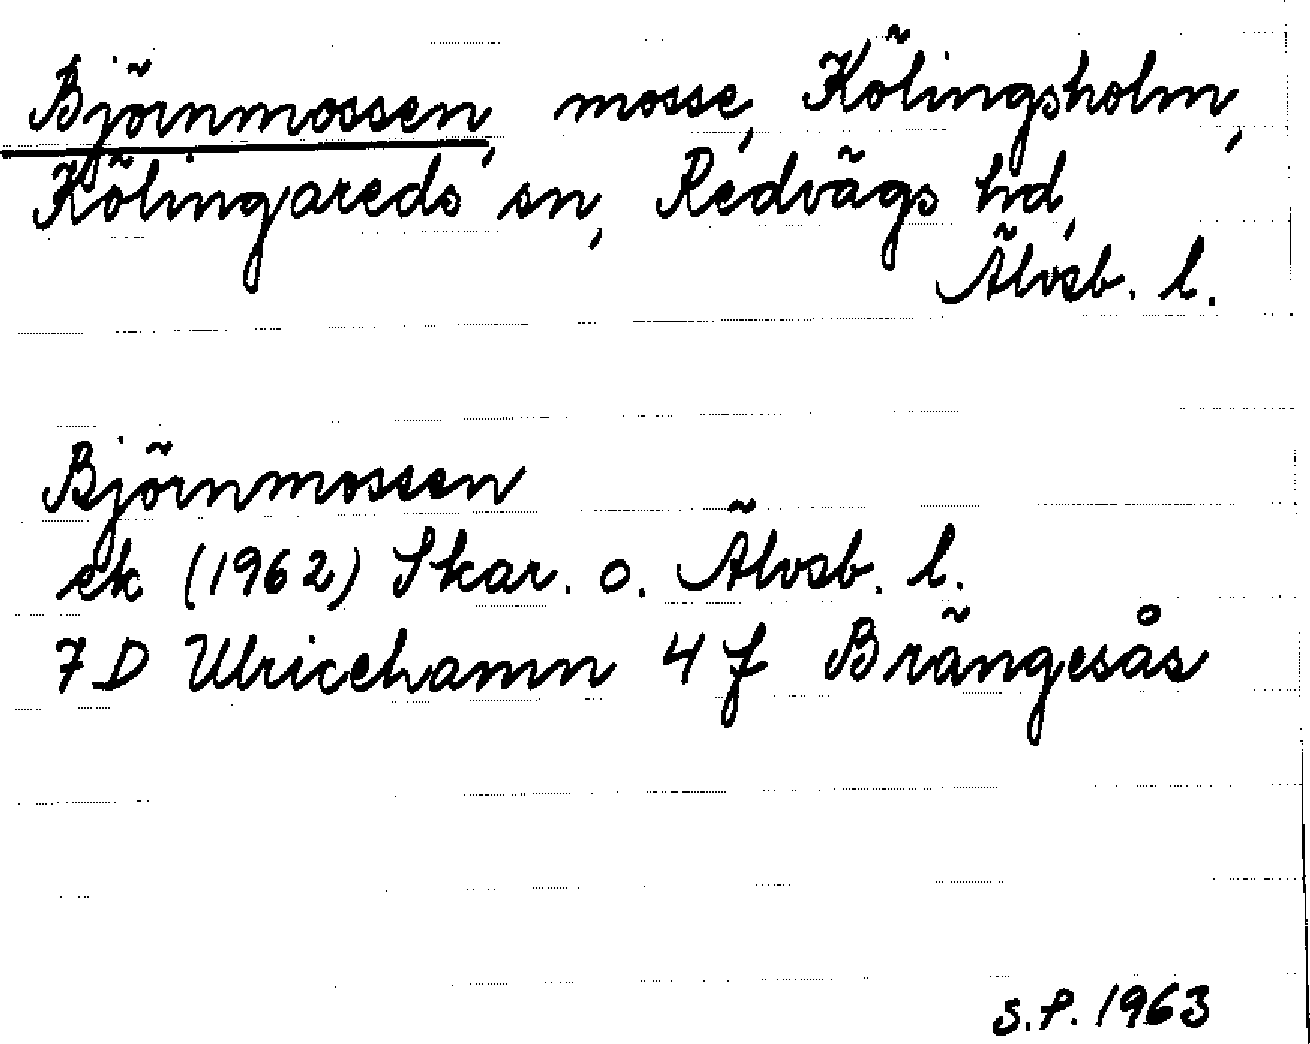 Björnmossen, mosse, Kölingsholm,
Kölingareds sn, Redvägs hd,
Älvsb. l.
Björnmossen
ek (1962) Skar. o. Älvsb. l.
7 D Ulricehamn 4 f Brängesås
S.P. 1963